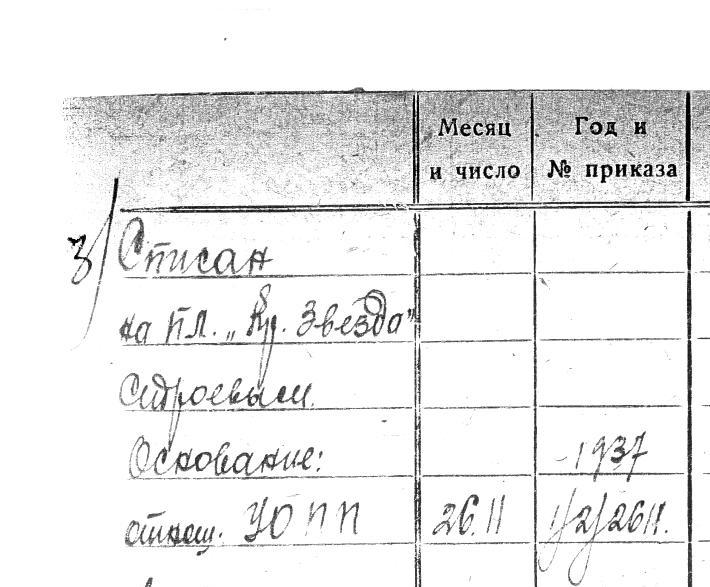 Месяц и число
Год и № приказа
3)
Списан
на пл. „Кр. Звезда"
Строевым.
Основание: 1937
отнош. УОПП 26.11